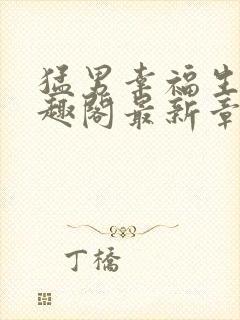 猛男幸福生
趣阁最新章
丁橋